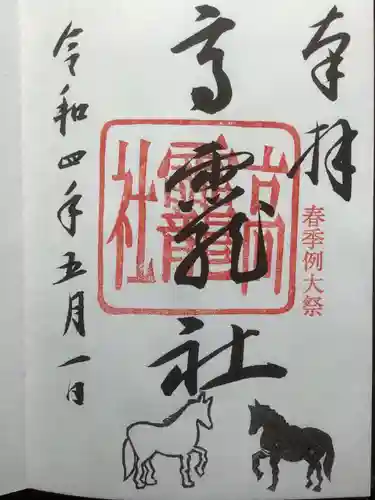 奉拝
春季例大祭
高龗社
高龗社
令和四年五月一日